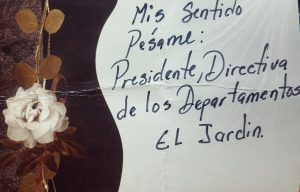 Mis Sentido
Pesame:
Presidente, Directiva
de los Departamentos
EL Jardin.